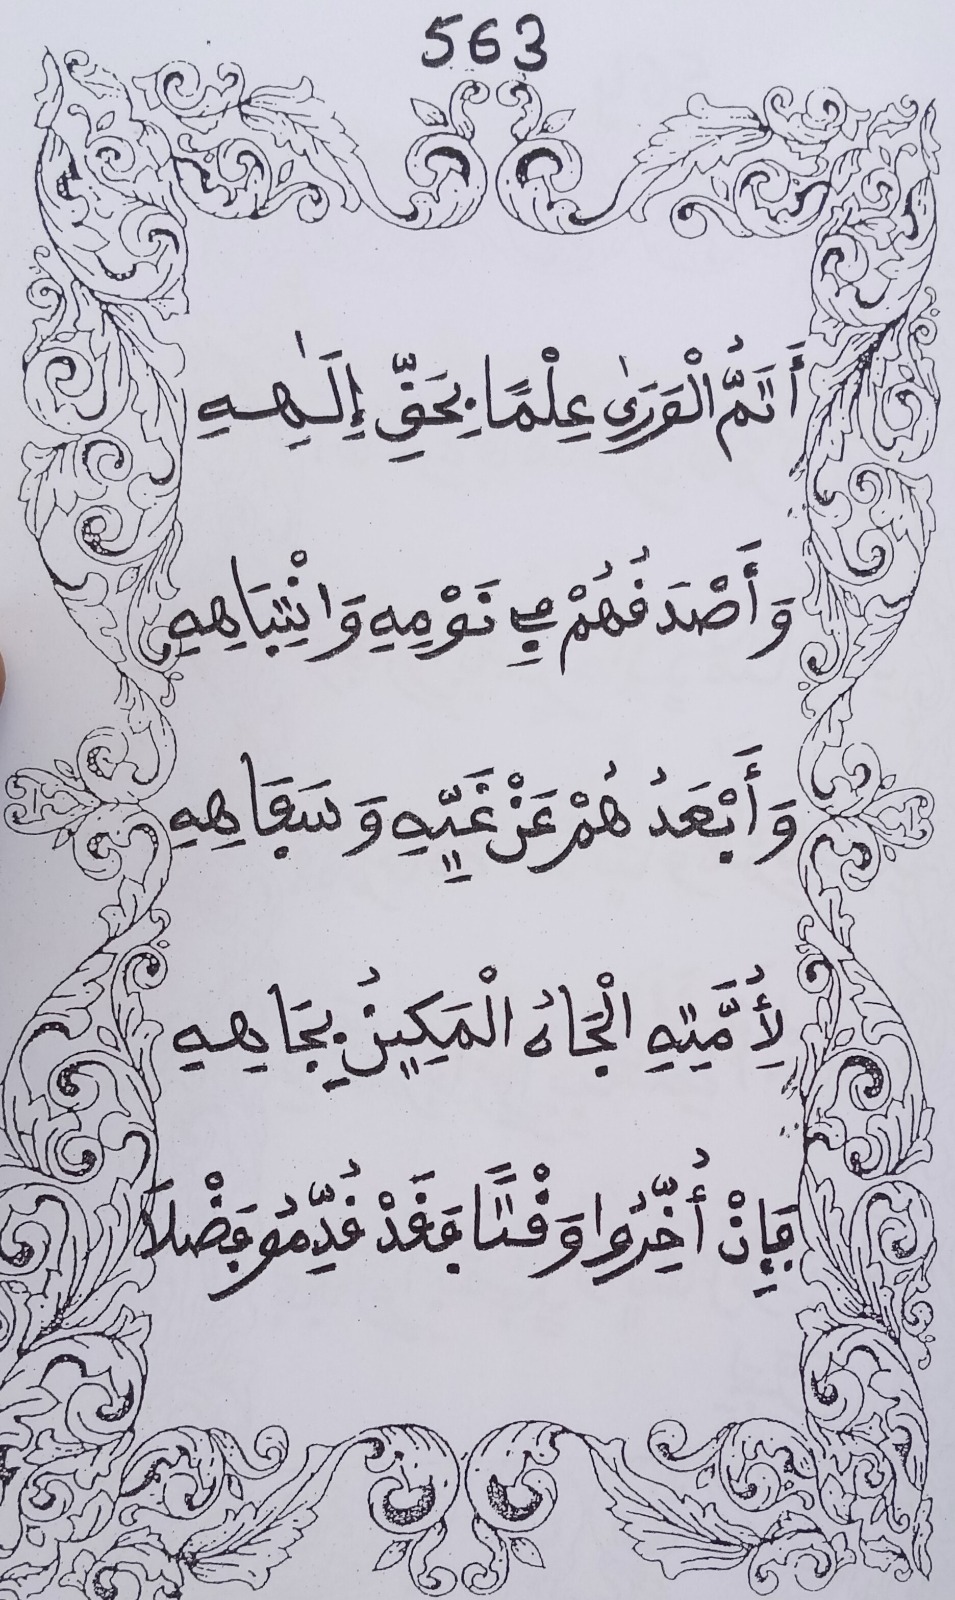 563
أَتَمُّ الْوَرَىٰ عِلْمًا بِحَقِّ إِلَٰهِهِ
وَأَصْدَقُهُمْ فِي نَوْمِهِ وَانْتِبَاهِهِ
وَأَبْعَدُهُمْ عَنْ غَيِّهِ وَسَفَاهِهِ
لِأُمَّتِهِ الْجَاهُ الْمَكِينُ بِجَاهِهِ
فَإِنْ أُخِّرُوا وَقْتًا فَقَدْ قُدِّمُو فَضْلاَ